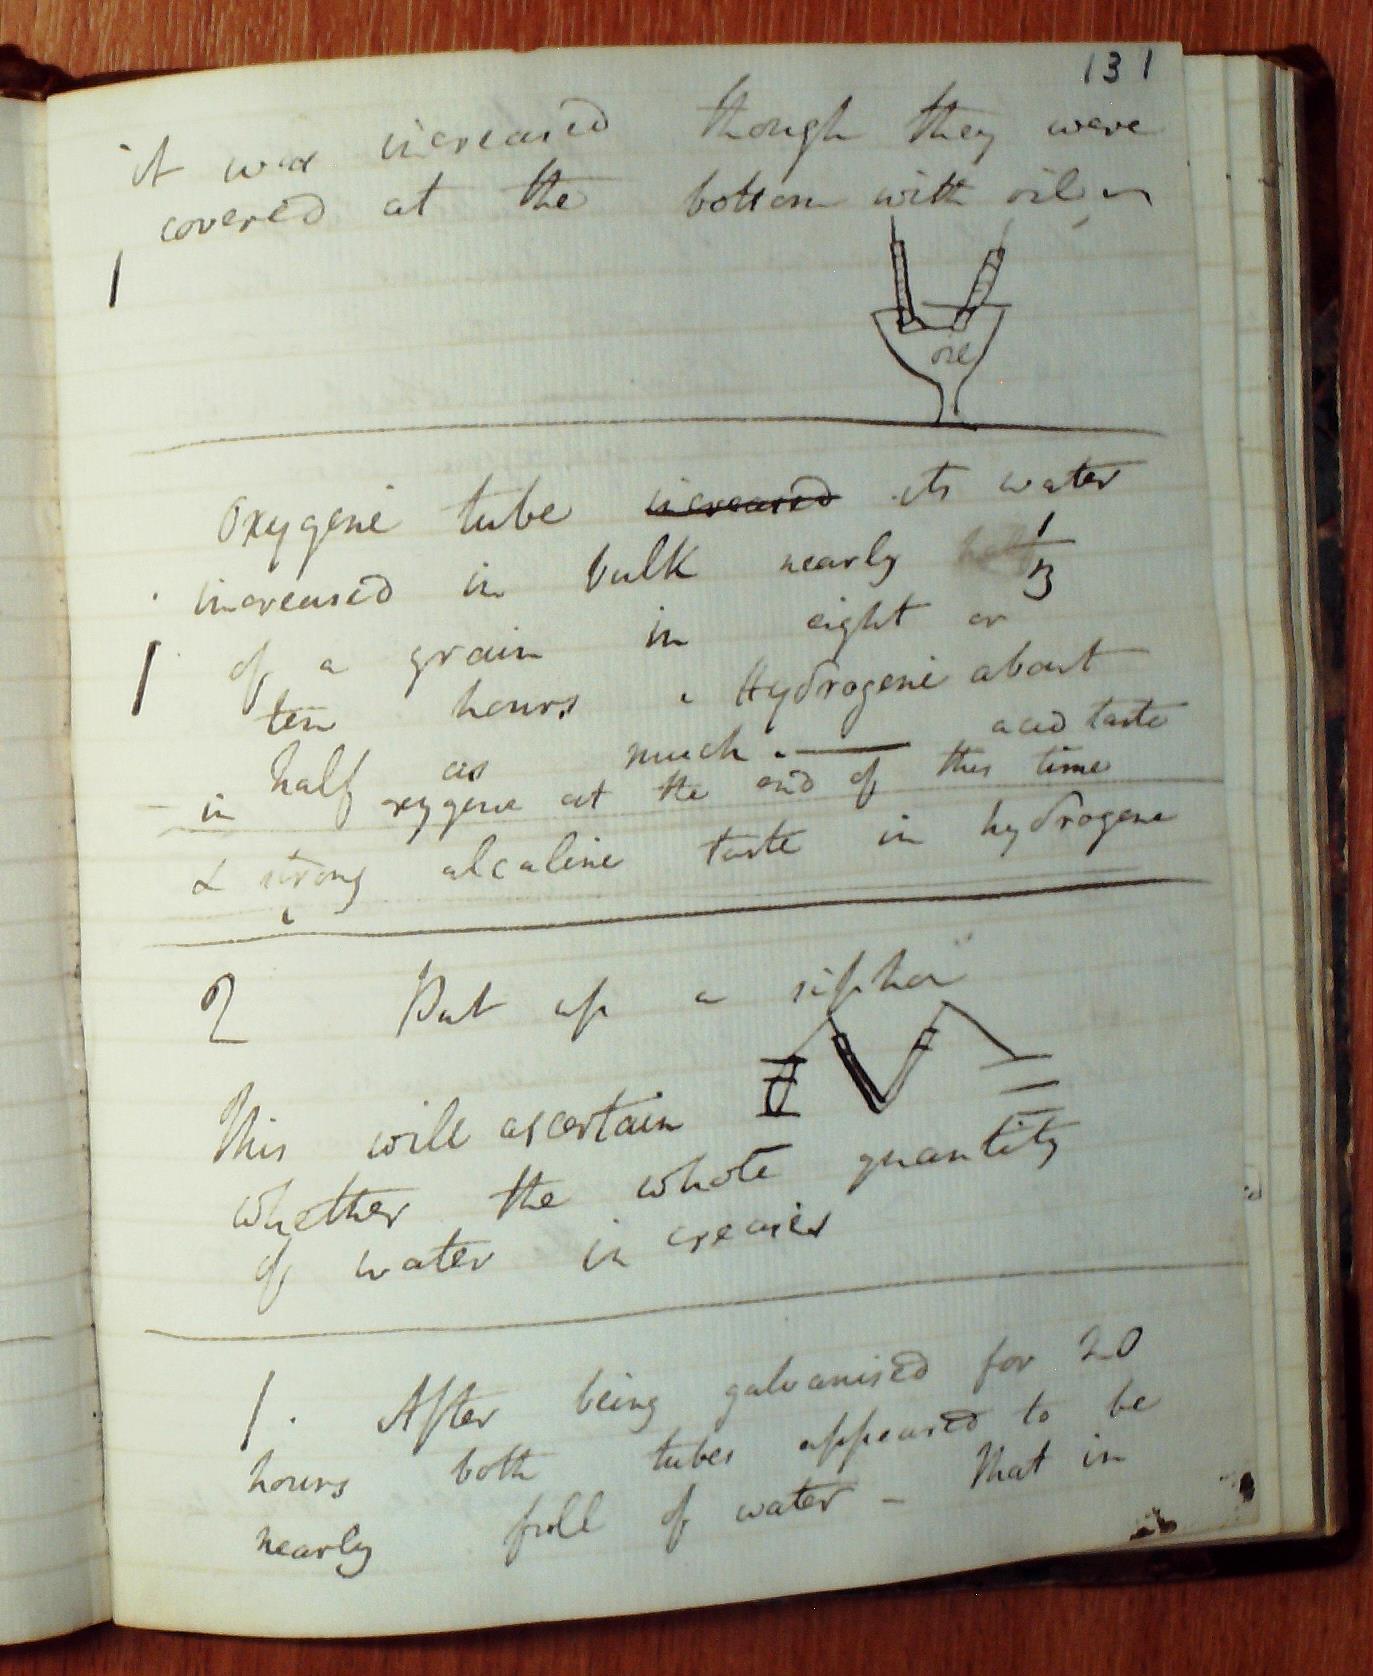 131
it was increased though they were
covered at the bottom with oil
1
oil
Oxygene tube increased its water
increased in bulk nearly half 1/3
1 of a grain in eight or
ten hours. Hydrogene about
half as much. — acid taste
in oxygene at the end of this time
& strong alcaline taste in hydrogene
2 Put up a siphon
This will ascertain
whether the whole quantity
of water increases
1. After being galvanised for 20
hours both tubes appeared to be
nearly full of water – That in